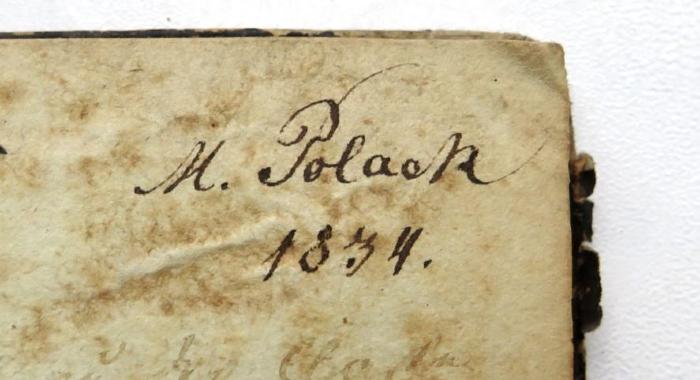 M. Polack
1834.